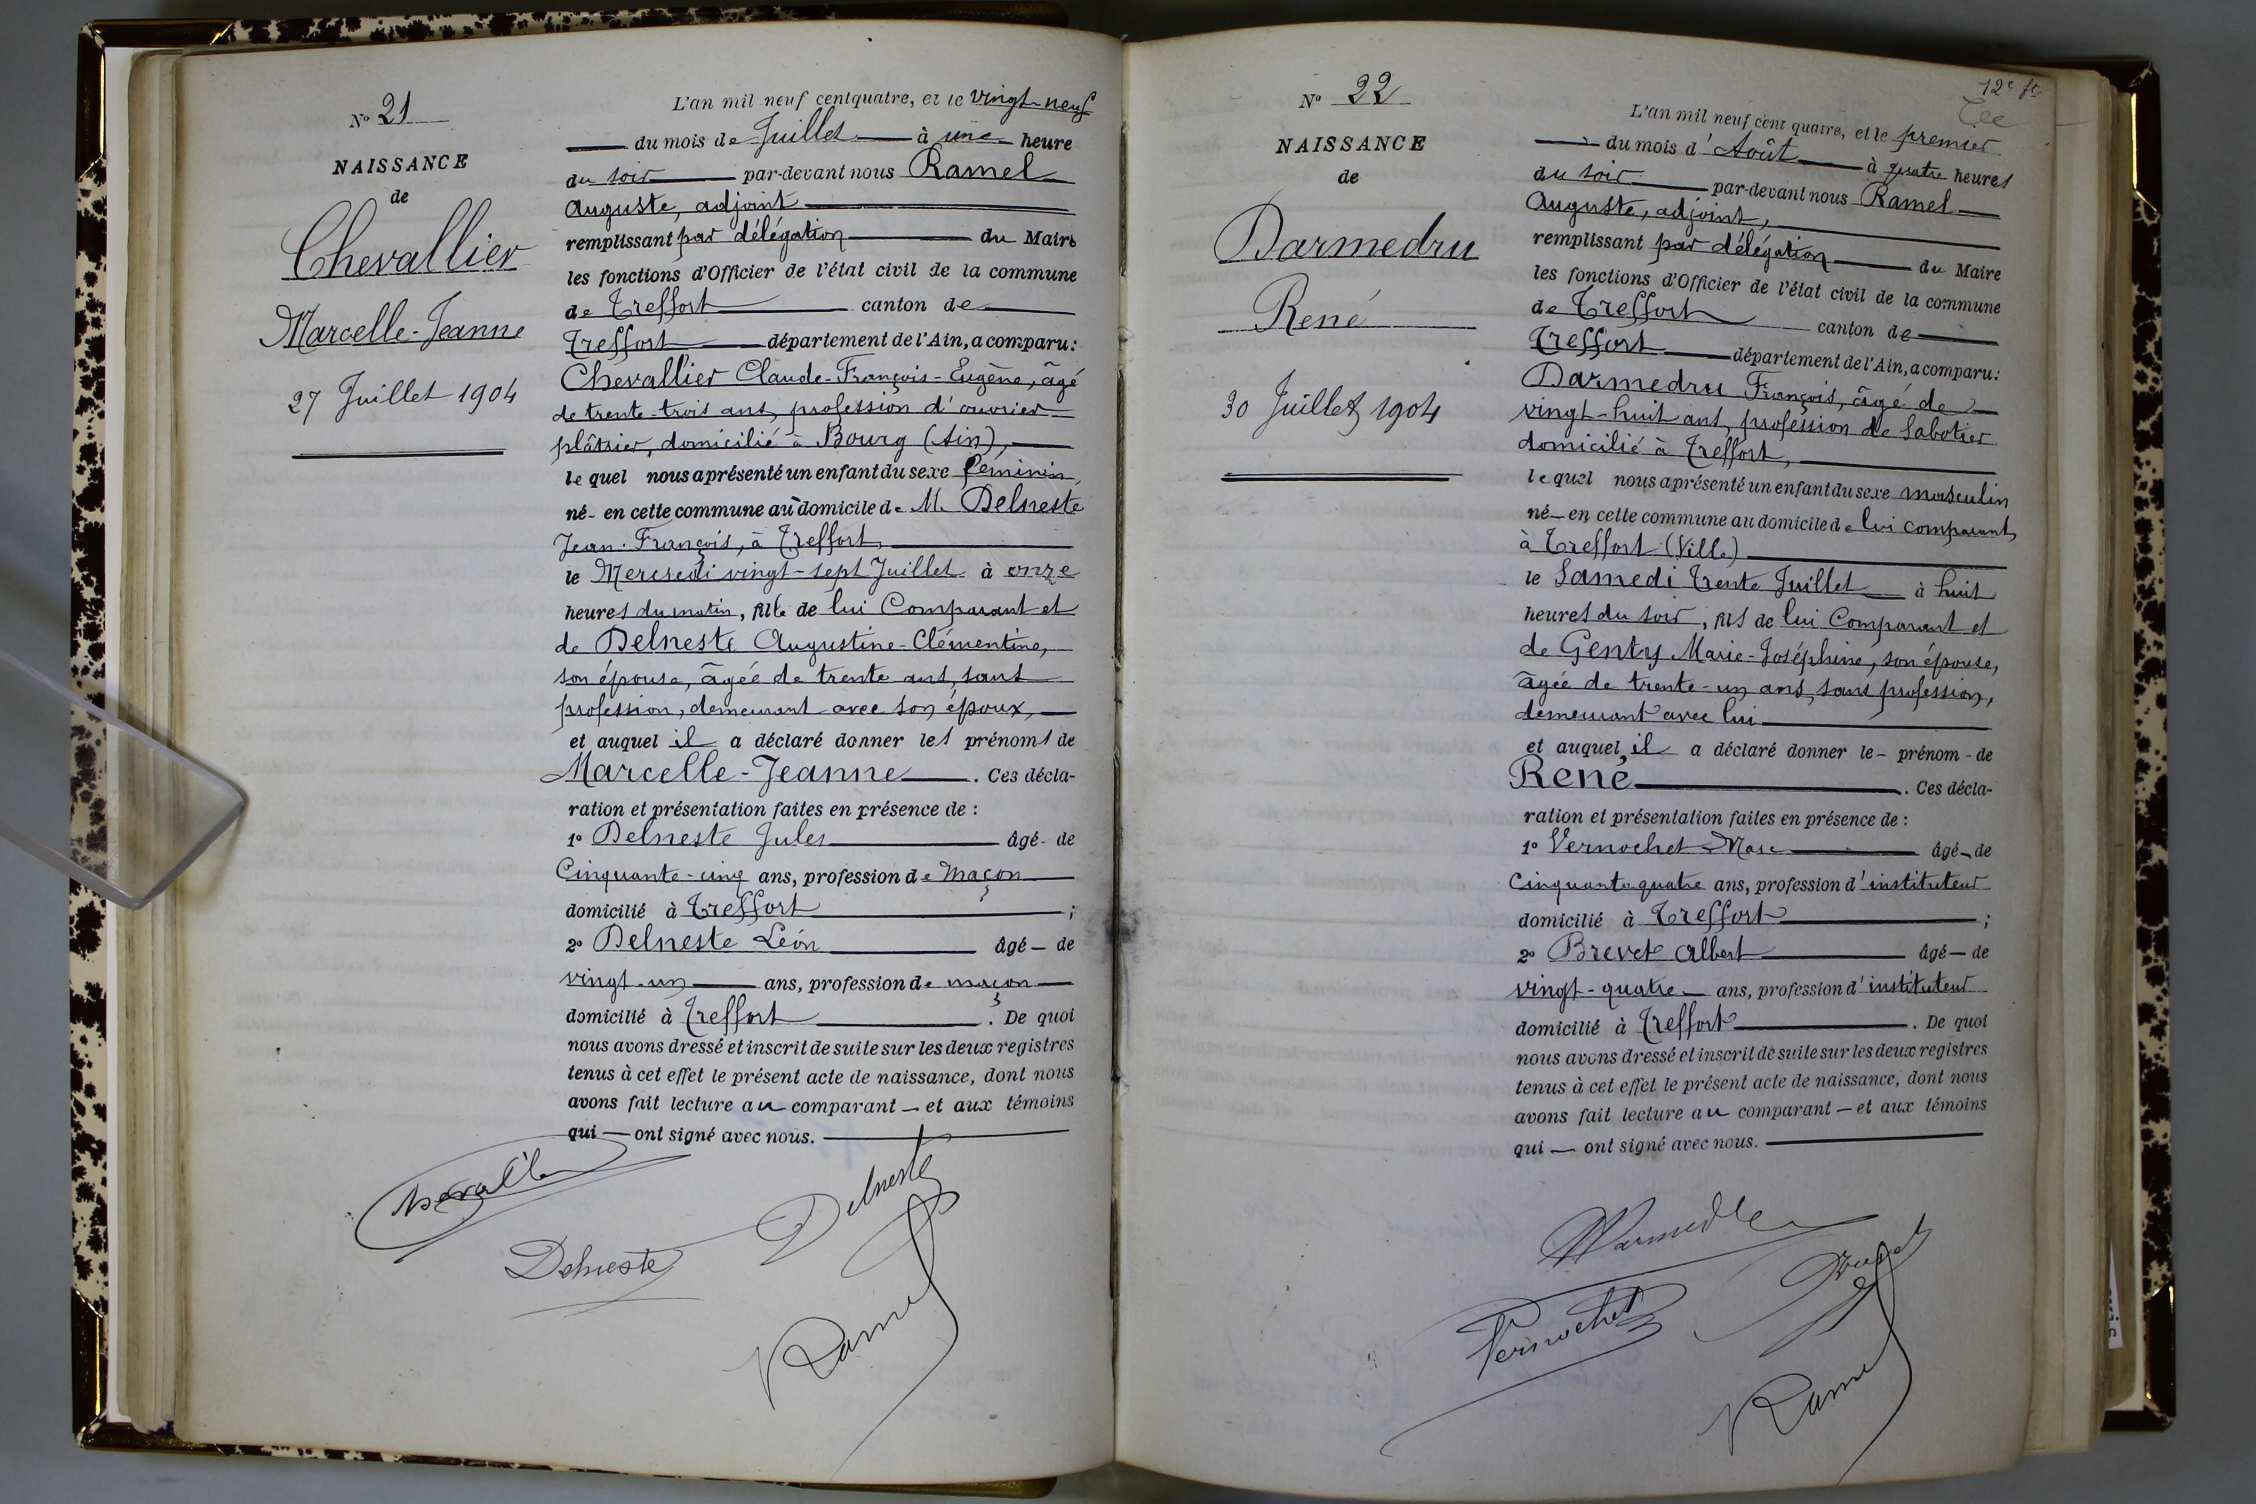 N° 21
NAISSANCE
de
Chevallier
Marcelle-Jeanne
27 Juillet 1904
L'an mil neuf cent quatre, et le vingt-neuf
du mois de Juillet à une heure
du soir par-devant nous Ramel
Auguste, adjoint
remplissant par délégation du Maire
les fonctions d'Officier de l'état civil de la commune
de Treffort canton de
Treffort département de l'Ain, a comparu:
Chevallier Claude-François-Eugène, âgé
de trente-trois ans, profession d'ouvrier
plâtrier, domicilié à Bourg (Ain),
le quel nous a présenté un enfant du sexe féminin,
né en cette commune au domicile de M. Delneste
Jean-François, à Treffort,
le Mercredi vingt-sept Juillet à onze
heures du matin, fille de lui Comparant et
de Delneste Augustine-Clémentine,
son épouse, âgée de trente ans, sans
profession, demeurant avec son époux,
et auquel il a déclaré donner les prénoms de
Marcelle-Jeanne. Ces décla-
ration et présentation faites en présence de :
1° Delneste Jules âgé de
Cinquante-cinq ans, profession de Maçon
domicilié à Treffort ;
2° Delneste Léon âgé de
vingt-un ans, profession de maçon
domicilié à Treffort. De quoi
nous avons dressé et inscrit de suite sur les deux registres
tenus à cet effet le présent acte de naissance, dont nous
avons fait lecture au comparant et aux témoins
qui ont signé avec nous.
Delneste
Delneste
Ramel
12e ft
N° 22
NAISSANCE
de
Darmedru
René
30 Juillet 1904
L'an mil neuf cent quatre, et le premier
du mois d'Août à quatre heures
du soir par-devant nous Ramel
Auguste, adjoint,
remplissant par délégation du Maire
les fonctions d'Officier de l'état civil de la commune
de Treffort canton de
Treffort département de l'Ain, a comparu:
Darmedru François, âgé de
vingt-huit ans, profession de Sabotier
domicilié à Treffort,
le quel nous a présenté un enfant du sexe masculin
né en cette commune au domicile de lui comparant,
à Treffort (Ville)
le Samedi trente Juillet à huit
heures du soir, fils de lui Comparant et
de Genty Marie-Joséphine, son épouse,
âgée de trente-un ans, sans profession,
demeurant avec lui
et auquel il a déclaré donner le prénom de
René. Ces décla-
ration et présentation faites en présence de :
1° Vernochet Marc âgé de
Cinquante-quatre ans, profession d'instituteur
domicilié à Treffort ;
2° Brevet Albert âgé de
vingt-quatre ans, profession d'instituteur
domicilié à Treffort. De quoi
nous avons dressé et inscrit de suite sur les deux registres
tenus à cet effet le présent acte de naissance, dont nous
avons fait lecture au comparant et aux témoins
qui ont signé avec nous.
Vernochet
Ramel